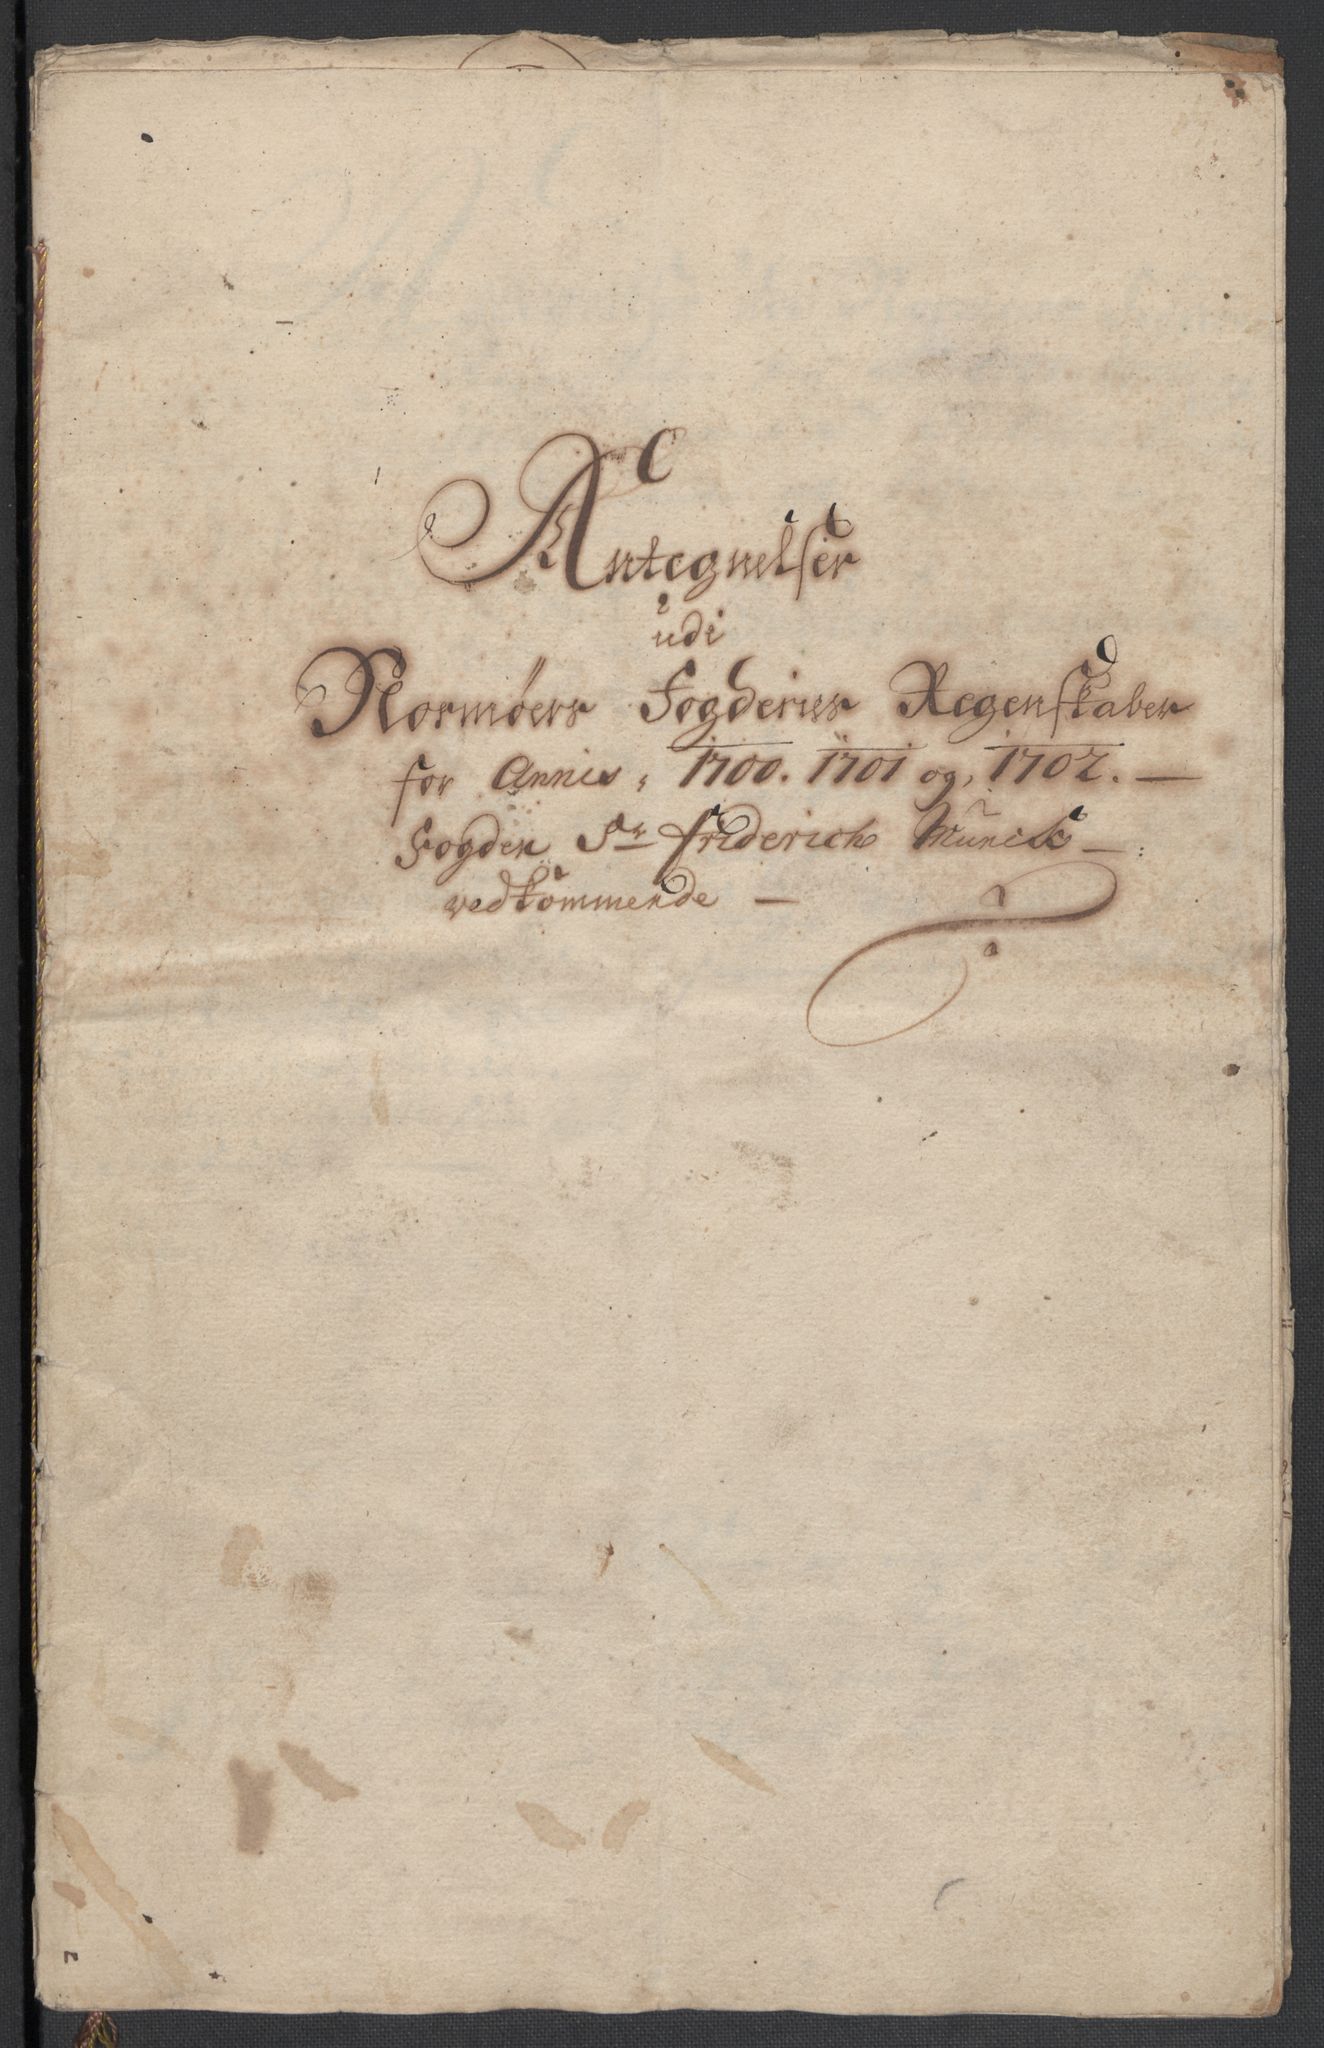 Antegnelser
udi
Normøers Fogderies Regenskaber
for Annis, 1700. 1701 og, 1702. —
Fogden Sr Friderich Munck —
vedkommende —